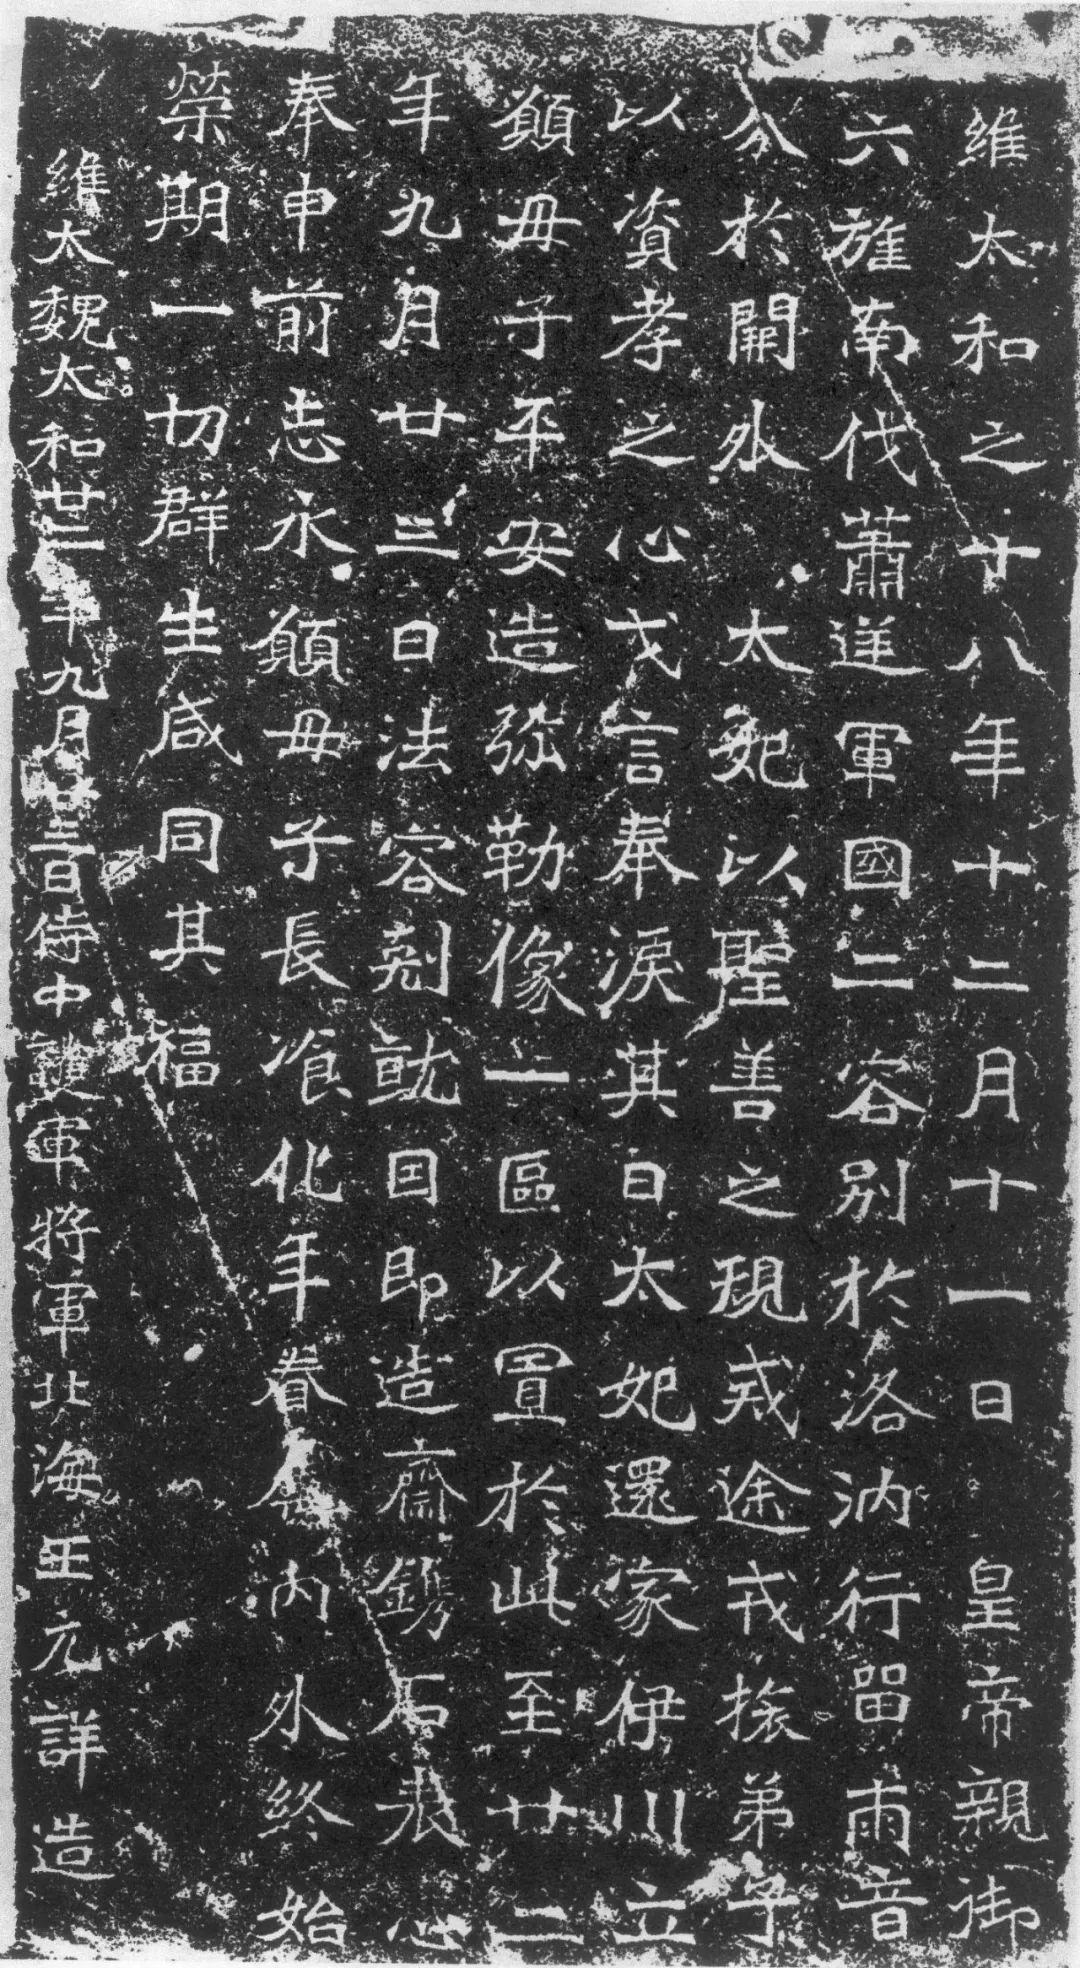 維太和之十八年十二月十一日皇帝親御
六旌南伐蕭逆軍國二容別於洛汭行留兩音
分於關外太妃以聖善之規戒途戎旅弟子
以資孝之心戈言奉淚其日太妃還家伊川立
願母子平安造彌勒像一區以置於此至廿二
年九月廿三日法容剋就因即造齋鐫石表心
奉申前志永願母子長飡化年眷屬內外終始
榮期一切群生咸同其福
維太魏太和廿二年九月廿三日侍中護軍將軍北海王元詳造